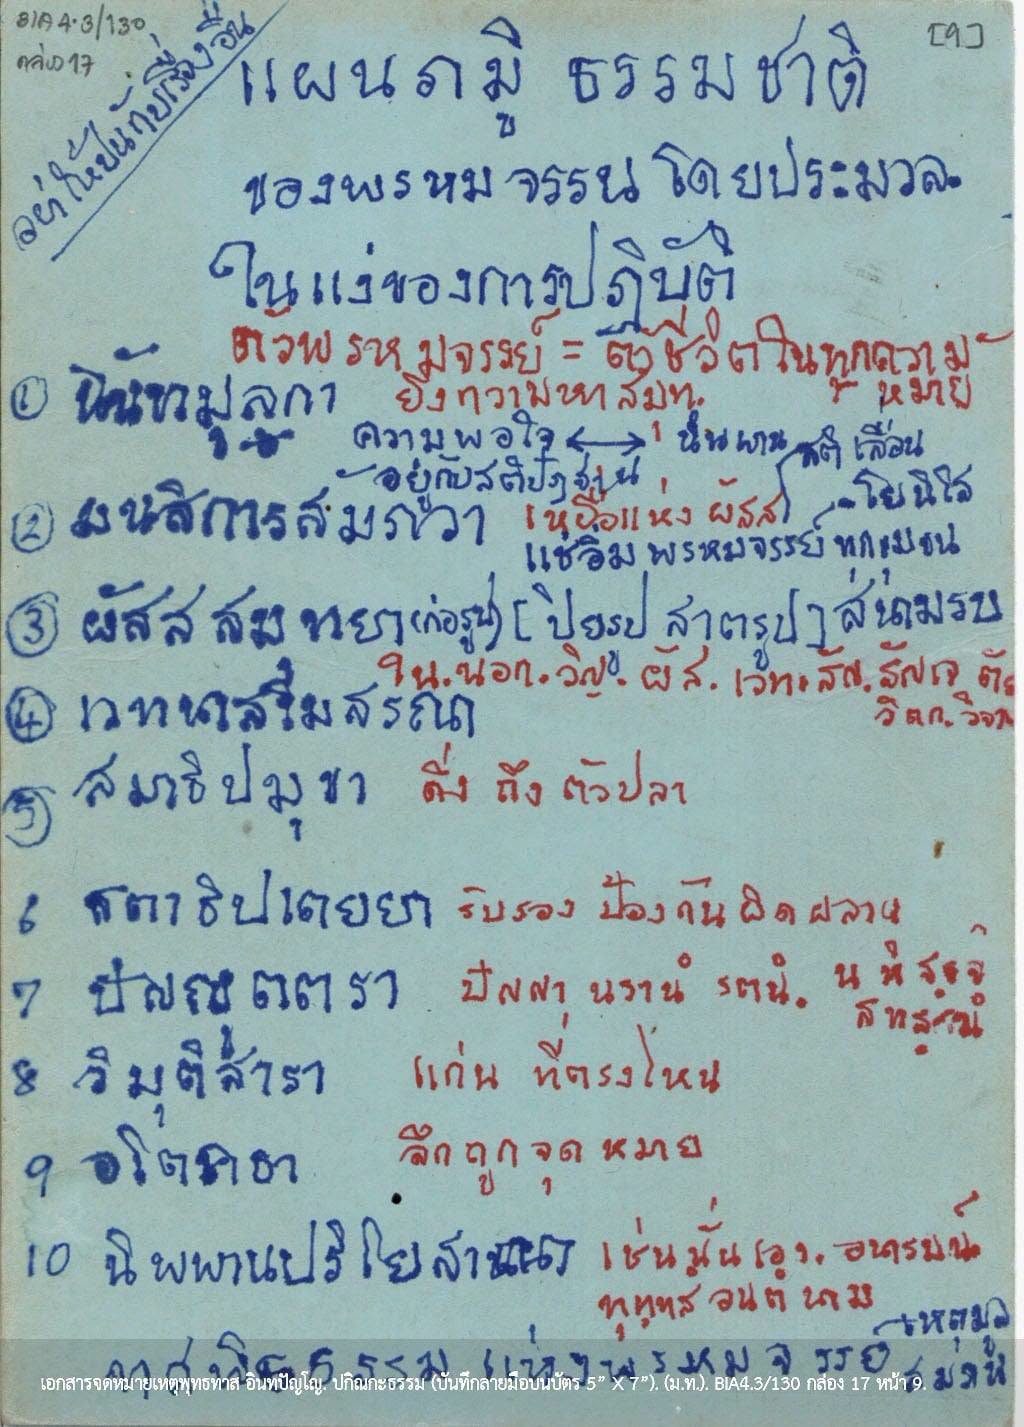 BIA4.3/130
กล่อง 17
[9]
อย่าให้ปนกับเรื่องอื่น
แผนภูมิ ธรรมชาติ
ของพรหมจรรย์ โดยประมวล
ในแง่ของการปฏิบัติ
ตัวพรหมจรรย์ = ตัวชีวิตในทุกความ
หมาย
① ฉันทมูลกา
ความพอใจ ↔ นิพพาน
อยู่กับสติปัฏฐาน
② มนสิการสัมภวา เหยื่อแห่งผัสส โยนิโส
พรหมจรรย์
③ ผัสสสมุทยา (ก่อรูป) [ปิยรูป สาตรูป] สนามรบ
ใน. นอก. วิญ. ผัส. เวท. สัญ. สัญเจ ตัณ
วิตก. วิจาร
④ เวทนาสโมสรณา
⑤ สมาธิปมุขา ดิ่ง ถึง ตัวปลา
6 สตาธิปเตยยา รับรอง ป้องกันผิดพลาด
7 ปัญญุตตรา ปัญญา นรานํ รตนํ.
8 วิมุติสารา แก่น ที่ตรงไหน
9 อโตคธา ลึกถูกจุดหมาย
10 นิพพานปริโยสานา เช่นนั่นเอง.
เหตุมูล
พรหมจรรย์
เอกสารจดหมายเหตุพุทธทาส อินทปัญโญ. ปกิณกะธรรม (บันทึกลายมือบนบัตร 5” X 7”). (ม.ท.). BIA4.3/130 กล่อง 17 หน้า 9.